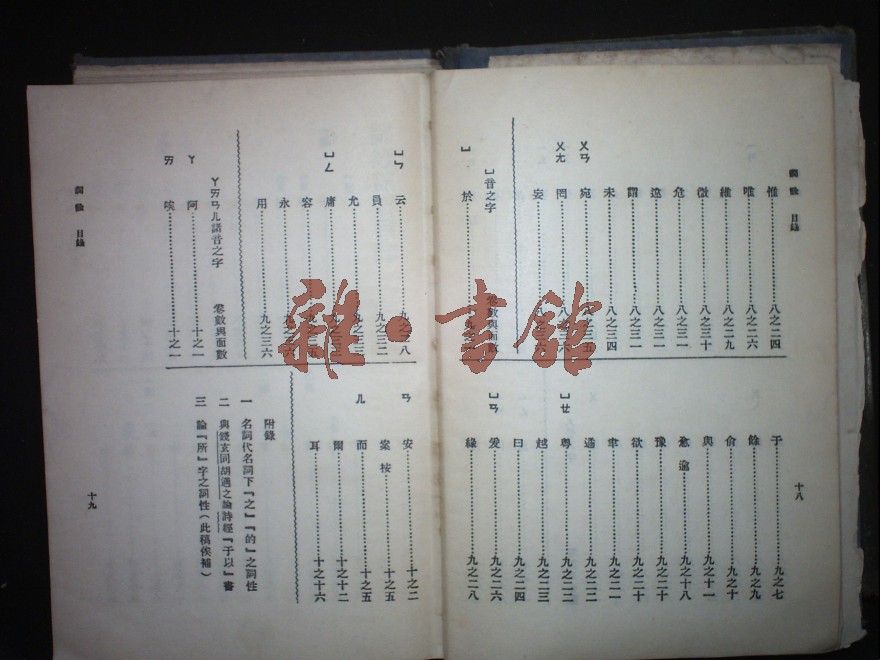 詞詮 目錄
惟 八之二四
唯 八之二六
維 八之二九
微 八之三十
危 八之三一
違 八之三一
謂 八之三一
未 八之三四
ㄨㄢ 宛
ㄨㄤ 罔
妄
ㄩ音之字 卷數與面數
ㄩ 於
于 九之七
餘 九之九
俞 九之十
與 九之十一
九之十八
豫 九之二十
欲 九之二十
聿 九之二一
遹 九之二二
ㄩㄝ 粵 九之二二
越 九之二三
曰 九之二四
ㄩㄢ 爰 九之二六
緣 九之二八
十八
ㄩㄣ 云
員 九之三二
允
ㄩㄥ 庸
容
永
用 九之三六
ㄚㄞㄢㄦ諸音之字 卷數與面數
ㄚ 阿 十之一
ㄞ 唉 十之一
詞詮 目錄
ㄢ 安 十之二
案 按 十之五
ㄦ 而 十之五
爾 十之十二
耳 十之十六
附錄
一 名詞代名詞下『之』『的』之詞性
二 與錢玄同胡適之論詩經『于以』書
三 論『所』字之詞性（此稿俟補）
十九
雜·書館